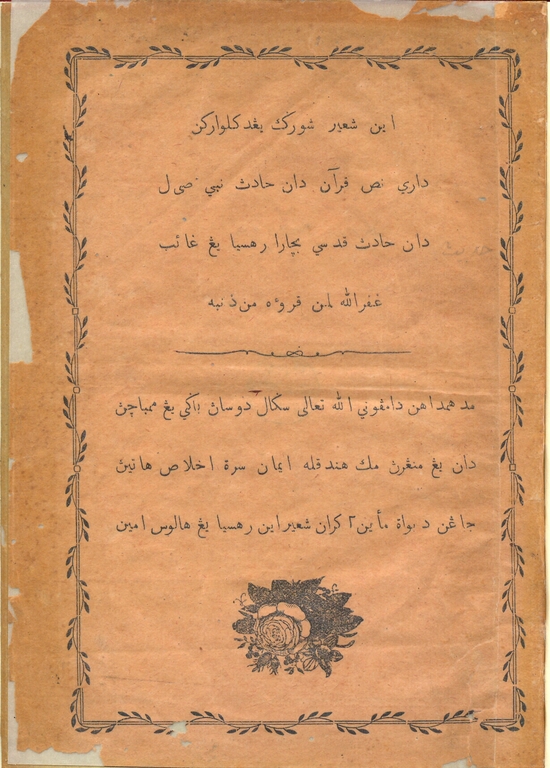 اين شعير شوركݢ يڠ دكلواركن
داري نص قرآن دان حادث نبي صي ل
دان حادث قدسي بچارا رهسيا يڠ غائب
غفرالله لمن قروءه من ذنبه
مد همداهن دامڤوني الله تعالى سݢال دوساڽ باݢي يڠ ممباچڽ
دان يڠ منڠرڽ مك هندقله ايمان سرة اخلاص هاتين
جاڠن دبواة مأين٢ كران شعير اين رهسيا يڠ هالوس امين